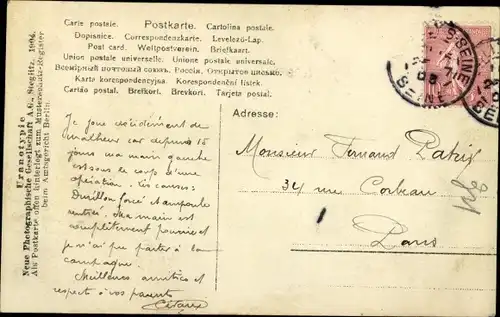 Carte postale. Postkarte. Cartolina postale.
Dopisnice. Correspondenzkarte. Levelező-Lap.
Post card. Weltpostverein. Briefkaart.
Union postale universelle. Unione postale universale.
Всемірный почтовый союзъ. Россія. Открытое письмо.
Karta korespondencyjna. Korespondenční lístek.
Cartão postal. Brefkort. Brevkort. Tarjeta postal.
Uranotypie
Neue Photographische Gesellschaft A.G., Steglitz, 1904.
Als Postkarte offen hinterlegt zum Musterschutz-Register
beim Amtsgericht Berlin.
SEINE
SEINE
Je joue décidément de
malheur car depuis 15
jours ma main gauche
est sous le coup d'une
opération.
Durillon forcé
rentré. Ma main est
complètement
je n'ai pu partir à la
campagne.
Meilleures amitiés et
respects à vos parents
Adresse:
Monsieur Fernand
34 rue Corbeau
Paris